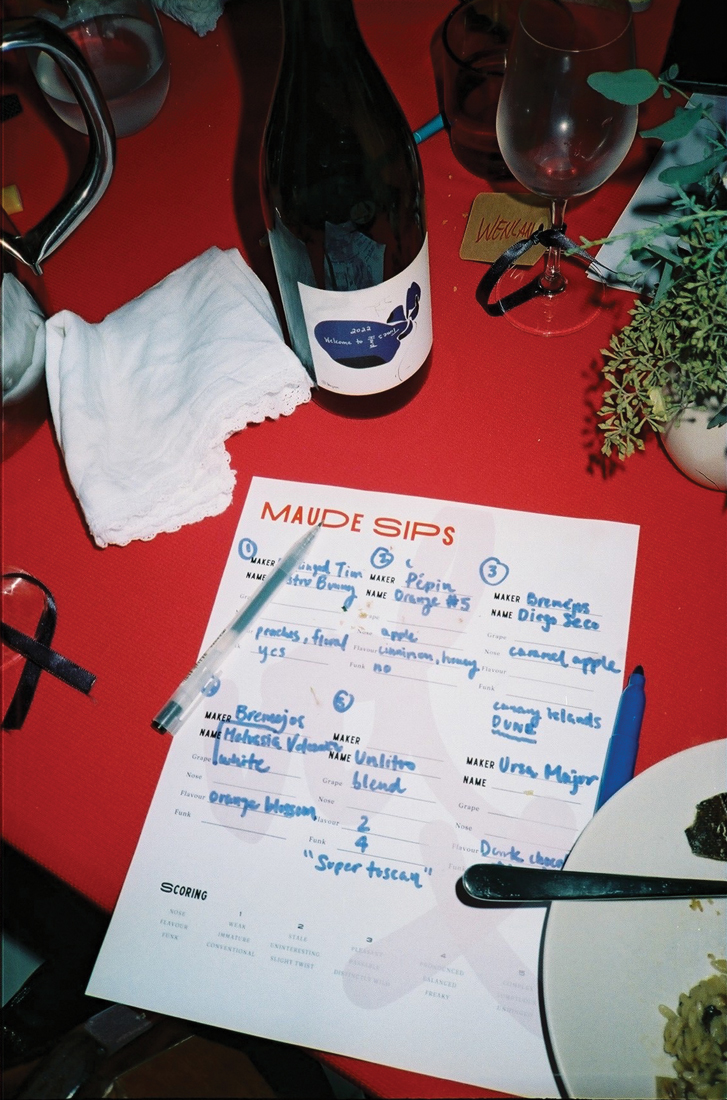 WENCAN
2022
Welcome to
MAUDE SIPS
1
MAKER Tim
NAME Bunny
peaches, floral
yes
2
MAKER Pépin
NAME Orange #5
Nose apple
Flavour cinnimon, honey
Funk no
3
MAKER
NAME Diego Seco
Grape
Nose caramel apple
Flavour
Funk
canary islands
DUNE
MAKER Bremejos
NAME Malvasia
Grape white
Nose
Flavour orange blossom
Funk
MAKER
NAME Unlitro
Grape blend
Nose
Flavour 2
Funk 4
"Super tuscan"
MAKER Ursa Major
NAME
Grape
Nose
Flavour Dark
Funk
SCORING
NOSE
FLAVOUR
FUNK
1
WEAK
IMMATURE
CONVENTIONAL
2
STALE
UNINTERESTING
SLIGHT TWIST
3
PLEASANT
DISTINCTLY WILD
4
PRONOUNCED
BALANCED
FREAKY
5